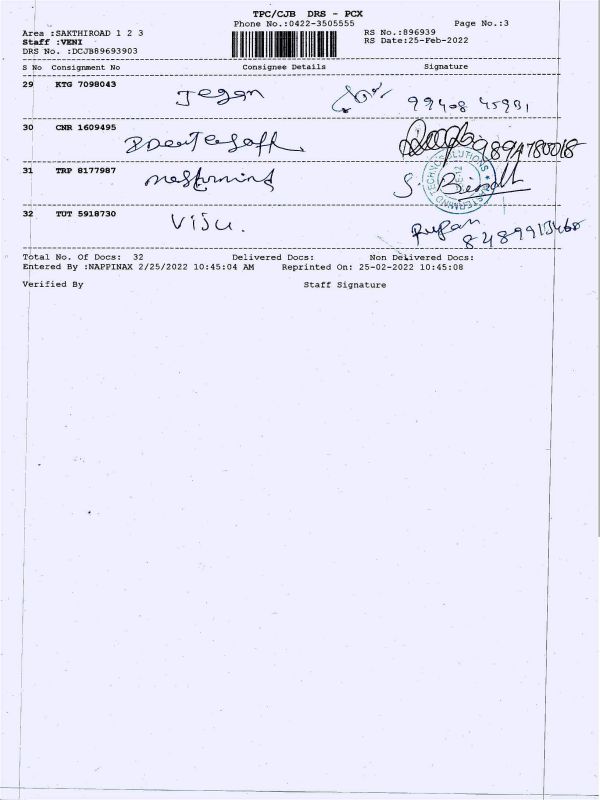 TPC/CJB DRS - PCX
Phone No.:0422-3505555 Page No.:3
Area :SAKTHIROAD 1 2 3 RS No.:896939
Staff :VENI RS Date:25-Feb-2022
DRS No. :DCJB89693903
S No Consignment No Consignee Details Signature
29 KTG 7098043
Jegan
30 CNR 1609495
31 TRP 8177987
32 TUT 5918730
Viju.
Total No. Of Docs: 32 Delivered Docs: Non Delivered Docs:
Entered By :NAPPINAX 2/25/2022 10:45:04 AM Reprinted On: 25-02-2022 10:45:08
Verified By Staff Signature